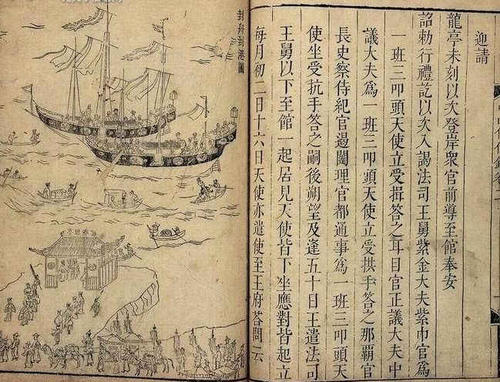 迎請
龍亭未刻以次登岸衆官前導至館奉安
詔勅行禮訖以次入謁法司王舅紫金大夫紫巾官為
一班三叩頭天使立受揖答之耳目官正議大夫中
議大夫為一班三叩頭天使立受拱手答之那霸官
長史察侍紀官遏闥理官都通事為一班三叩頭天
使坐受抗手答之嗣後朔望及逢五十日王遣法司
王舅以下至館一起居見天使皆下坐應對皆起立
每月初二日十六日天使亦遣使至王府答問云
封舟到港圖